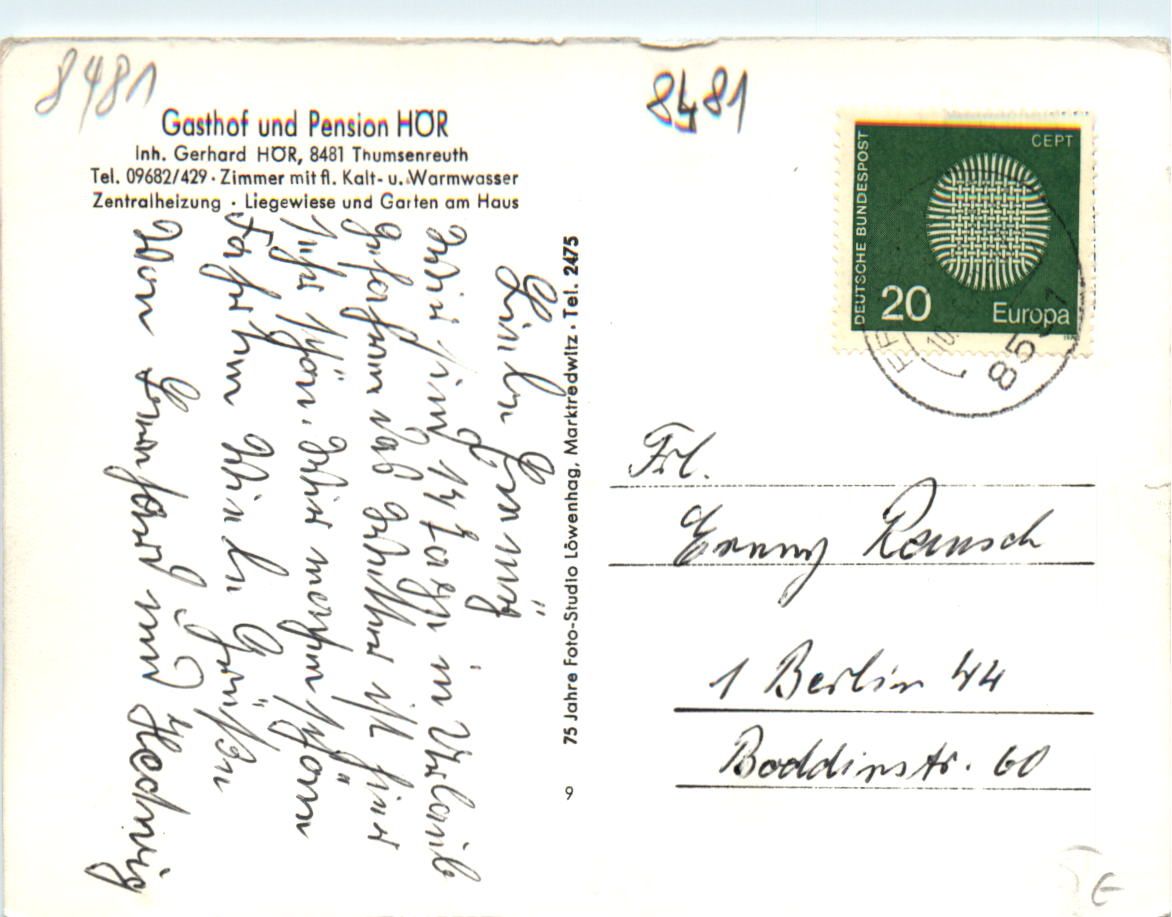 8481
Gasthof und Pension HÖR
Inh. Gerhard HÖR, 8481 Thumsenreuth
Tel. 09682/429 · Zimmer mit fl. Kalt- u. Warmwasser
Zentralheizung · Liegewiese und Garten am Haus
Liebe Erny
Wir sind 14 Tage in Urlaub
gefahren das Wetter ist hier
sehr schön. Wir machen schön
Fahrten Viele Grüße
Von Gerhard und Hedwig
75 Jahre Foto-Studio Löwenhag, Marktredwitz · Tel. 2475
9
8481
DEUTSCHE BUNDESPOST
CEPT
20
Europa
Frl.
Erny Rausch
1 Berlin 44
Boddinstr. 60